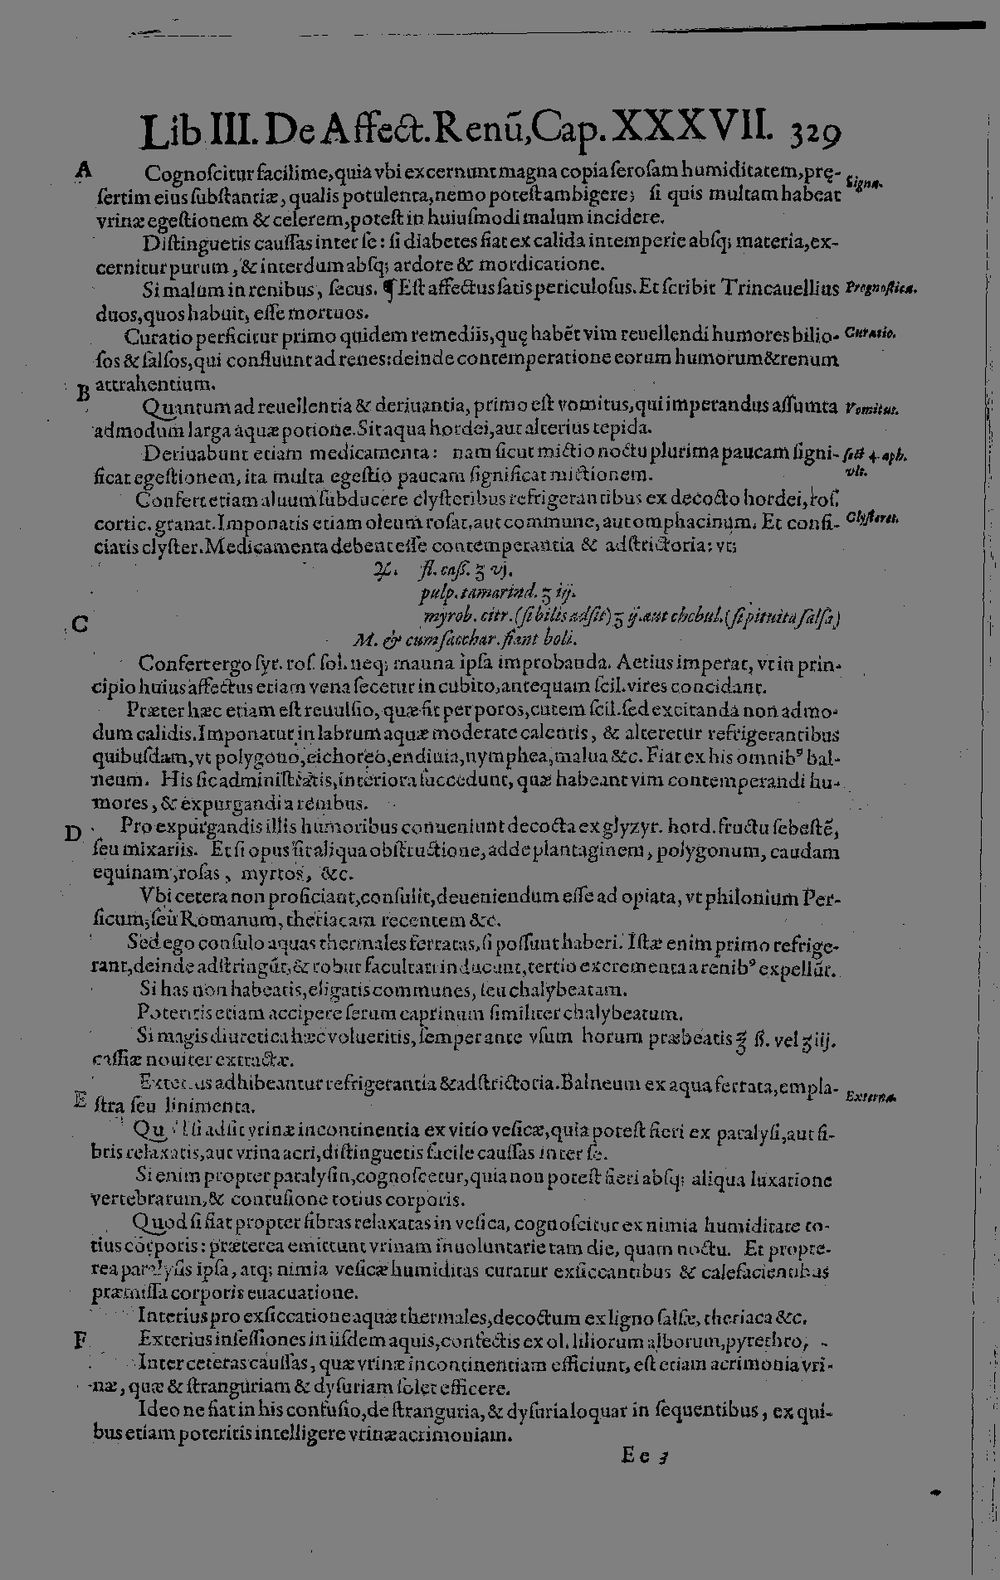 Lib III. De Affect. Renũ, Cap. XXXVII. 329
A Cognoſcitur facilime, quia vbi excernunt magna copia ſeroſam humiditatem, prę- Signa.
ſertim eius ſubſtantiæ, qualis potulenta, nemo poteſt ambigere; ſi quis multam habeat
vrinæ egeſtionem & celerem, poteſt in huiuſmodi malum incidere.
Diſtinguetis cauſſas inter ſe: ſi diabetes fiat ex calida intemperie abſq; materia, ex-
cernitur purum, & interdum abſq; ardore & mordicatione.
Si malum in renibus, ſecus. ¶ Eſt affectus ſatis periculoſus. Et ſcribit Trincauellius Prognoſtica.
duos, quos habuit, eſſe mortuos.
Curatio perficitur primo quidem remediis, quę habẽt vim reuellendi humores bilio- Curatio.
ſos & ſalſos, qui confluunt ad renes: deinde contemperatione eorum humorum & renum
B attrahentium.
Quantum ad reuellentia & deriuantia, primo eſt vomitus, qui imperandus aſſumta Vomitus.
admodum larga aquæ potione. Sit aqua hordei, aut alterius tepida.
Deriuabunt etiam medicamenta: nam ſicut mictio noctu plurima paucam ſigni- ſect 4. aph.
ficat egeſtionem, ita multa egeſtio paucam ſignificat mictionem. vlt.
Confert etiam aluum ſubducere clyſteribus refrigerantibus ex decocto hordei, roſ.
cortic. granat. Imponatis etiam oleum roſat, aut commune, aut omphacinum. Et confi- Clyſteres.
ciatis clyſter. Medicamenta debent eſſe contemperantia & adſtrictoria: vt;
♃. fl. caſſ. ʒ vj.
pulp. tamarind. ʒ iij.
myrob. citr. (ſi bilis adſit) ʒ ij. aut chebul. (ſi pituita ſalſa)
C M. & cum ſacchar. fiant boli.
Confert ergo ſyr. roſ. ſol. neq; manna ipſa improbanda. Aetius imperat, vt in prin-
cipio huius affectus etiam vena ſecetur in cubito, antequam ſcil. vires concidant.
Præter hæc etiam eſt reuulſio, quæ fit per poros, cutem ſcil. ſed excitanda non admo-
dum calidis. Imponatur in labrum aquæ moderate calentis, & alteretur refrigerantibus
quibuſdam, vt polygono, cichoreo, endiuia, nymphea, malua &c. Fiat ex his omnibꝰ bal-
neum. His ſic adminiſtratis, interiora ſuccedunt, quæ habeant vim contemperandi hu-
mores, & expurgandi a renibus.
D Pro expurgandis illis humoribus conueniunt decocta ex glyzyr. hord. fructu ſebeſtẽ,
ſeu mixariis. Et ſi opus ſit aliqua obſtructione, adde plantaginem, polygonum, caudam
equinam, roſas, myrtos, &c.
Vbi cetera non proficiant, conſulit, deueniendum eſſe ad opiata, vt philonium Per-
ſicum, ſeu Romanum, theriacam recentem &c.
Sed ego conſulo aquas thermales ferratas, ſi poſſunt haberi. Iſtæ enim primo refrige-
rant, deinde adſtringũt, & robur facultati inducunt, tertio excrementa a renibꝰ expellũt.
Si has non habeatis, eligatis communes, ſeu chalybeatam.
Poteritis etiam accipere ſerum caprinum ſimiliter chalybeatum.
Si magis diuretica hæc volueritis, ſemper ante vſum horum præbeatis ℥ ß. vel ʒ iij.
caſſiæ nouiter extractæ.
Exterius adhibeantur refrigerantia & adſtrictoria. Balneum ex aqua ferrata, empla- Externa.
E ſtra ſeu linimenta.
Quod ſi adſit vrinæ incontinentia ex vitio veſicæ, quia poteſt fieri ex paralyſi, aut fi-
bris relaxatis, aut vrina acri, diſtinguetis facile cauſſas inter ſe.
Si enim propter paralyſin, cognoſcetur, quia non poteſt fieri abſq; aliqua luxatione
vertebrarum, & contuſione totius corporis.
Quod ſi fiat propter fibras relaxatas in veſica, cognoſcitur ex nimia humiditate to-
tius corporis: præterea emittunt vrinam inuoluntarie tam die, quam noctu. Et propte-
rea paralyſis ipſa, atq; nimia veſicæ humiditas curatur exſiccantibus & calefacientibus
præmiſſa corporis euacuatione.
Interius pro exſiccatione aquæ thermales, decoctum ex ligno ſalſæ, theriaca &c.
F Exterius inſeſſiones in iiſdem aquis, confectis ex ol. liliorum alborum, pyrethro,
Inter ceteras cauſſas, quæ vrinæ incontinentiam efficiunt, eſt etiam acrimonia vri-
næ, quæ & ſtranguriam & dyſuriam ſolet efficere.
Ideo ne fiat in his confuſio, de ſtranguria, & dyſuria loquar in ſequentibus, ex qui-
bus etiam poteritis intelligere vrinæ acrimoniam.
Ee 3